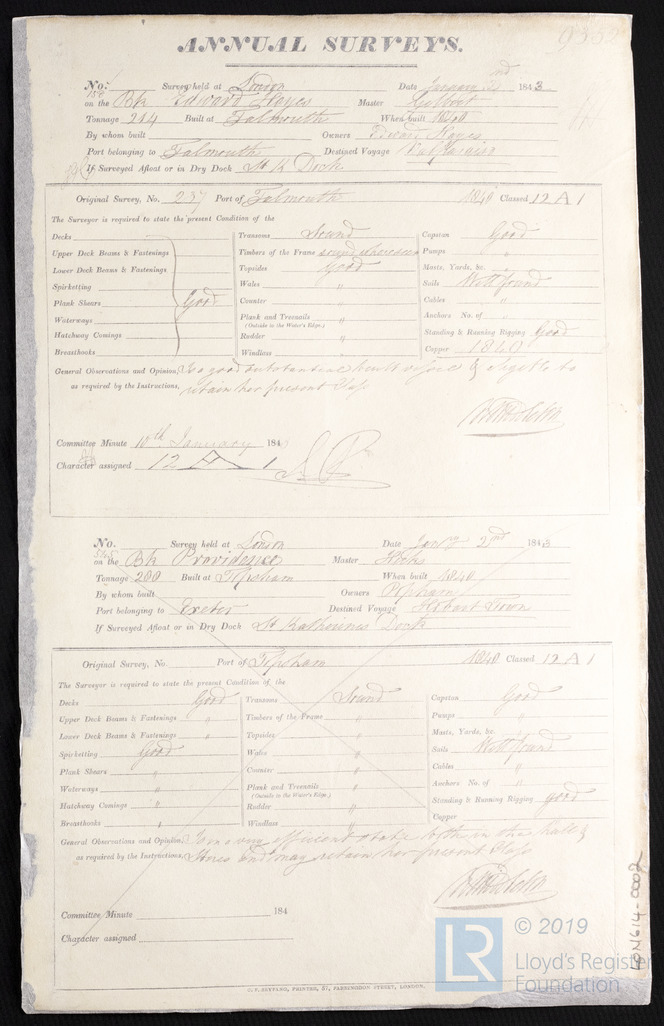 ANNUAL SURVEYS.
No. Survey held at London Date January 2nd 1843
on the Bk Edward Hayes Master
Tonnage 214 Built at Falmouth When built 1840
By whom built Owners Hayes
Port belonging to Falmouth Destined Voyage Valparaiso
If Surveyed Afloat or in Dry Dock St K Dock
Original Survey, No. 237 Port of Falmouth 1840 Classed 12 A 1
The Surveyor is required to state the present Condition of the
Decks Transoms Sound Capstan Good
Upper Deck Beams & Fastenings Timbers of the Frame sound where seen Pumps "
Lower Deck Beams & Fastenings Topsides Good Masts, Yards, &c. "
Spirketting Wales " Sails Well found
Plank Shears Good Counter " Cables "
Waterways Plank and Treenails " Anchors No. of
(Outside to the Water's Edge.)
Hatchway Comings Rudder " Standing & Running Rigging Good
Breasthooks Windlass Copper 1840
General Observations and Opinion, Is a good substantial built vessel & eligible to
as required by the Instructions, retain her present Class
Committee Minute 10th January 184
Character assigned 12 A 1
No. Survey held at London Date Jany 2nd 1843
on the Bk Providence Master
Tonnage 200 Built at Topsham When built 1840
By whom built Owners Popham
Port belonging to Exeter Destined Voyage Hobart Town
If Surveyed Afloat or in Dry Dock St Katherines Dock
Original Survey, No. Port of Topsham 1840 Classed 12 A 1
The Surveyor is required to state the present Condition of the
Decks Good Transoms Sound Capstan Good
Upper Deck Beams & Fastenings " Timbers of the Frame " Pumps "
Lower Deck Beams & Fastenings " Topsides " Masts, Yards, &c.
Spirketting Good Wales " Sails Well found
Plank Shears " Counter " Cables "
Waterways " Plank and Treenails " Anchors No. of "
(Outside to the Water's Edge.)
Hatchway Comings " Rudder " Standing & Running Rigging good
Breasthooks " Windlass " Copper
General Observations and Opinion, Is in a very efficient state both in the hull &
as required by the Instructions, Stores and may retain her present Class
Committee Minute 184
Character assigned
LR © 2019
Lloyd's Register
Foundation
LON614-0002
PRINTED, 57, FARRINGDON STREET, LONDON.